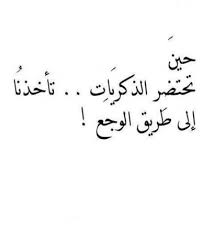 حينَ
تحتضر الذكريَات . . تأخذنُا
إلى طَريق الوجع !